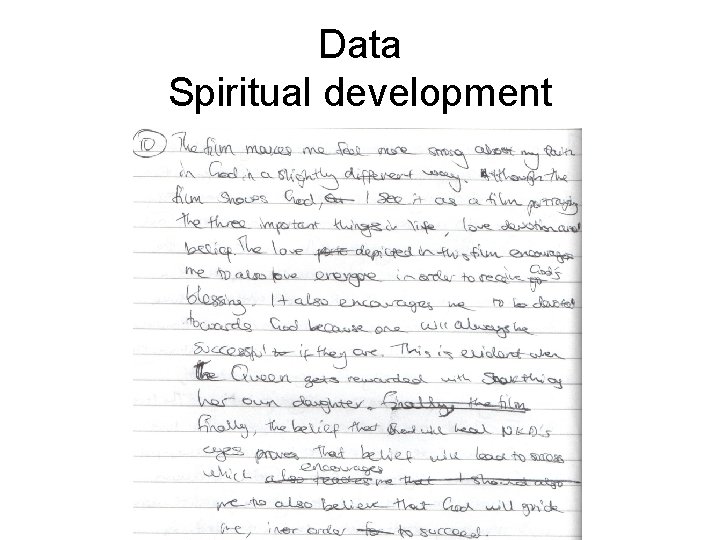 Data
Spiritual development
10 The film makes me feel more strong about my faith
in God in a slightly different way. Although the
film shows God, I see it as a film portraying
the three important things in life, love devotion and
belief. The love depicted in this film encourages
me to also love everyone in order to receive God's
blessing. It also encourages me to be devoted
towards God because one will always be
successful if they are. This is evident when
the Queen gets rewarded with
her own daughter. Finally, the film
Finally, the belief that will heal NKD's
eyes proves that belief will lead to success
which encourages
me to also believe that God will guide
me, in order to succeed.